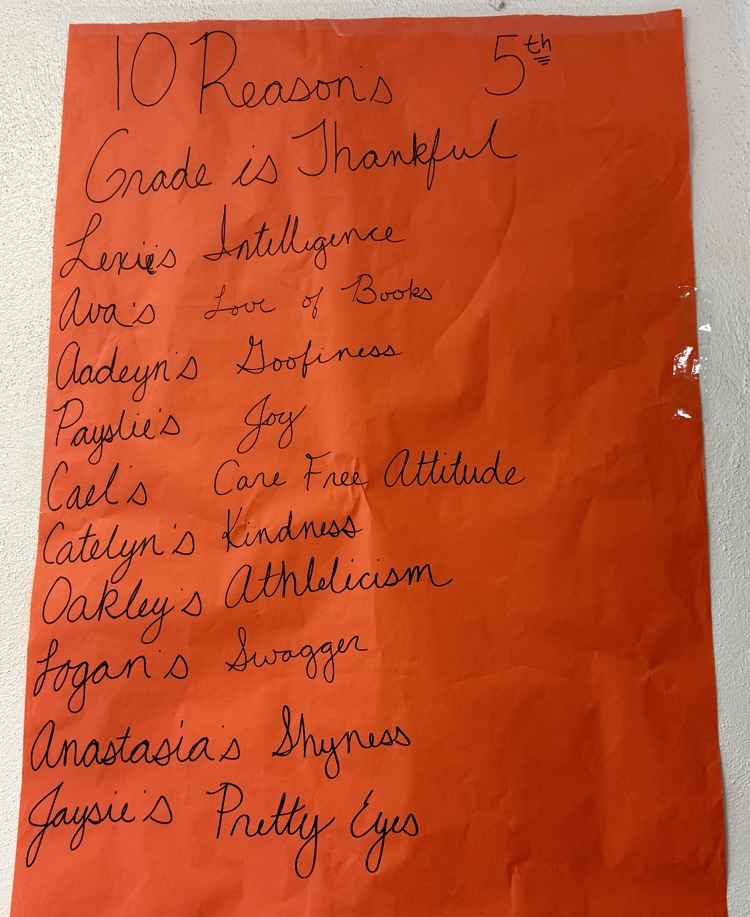 10 Reasons 5th
Grade is Thankful
Lexie's Intelligence
Ava's Love of Books
Aadeyn's Goofiness
Payslie's Joy
Cael's Care Free Attitude
Catelyn's Kindness
Oakley's Athleticism
Logan's Swagger
Anastasia's Shyness
Jaysie's Pretty Eyes